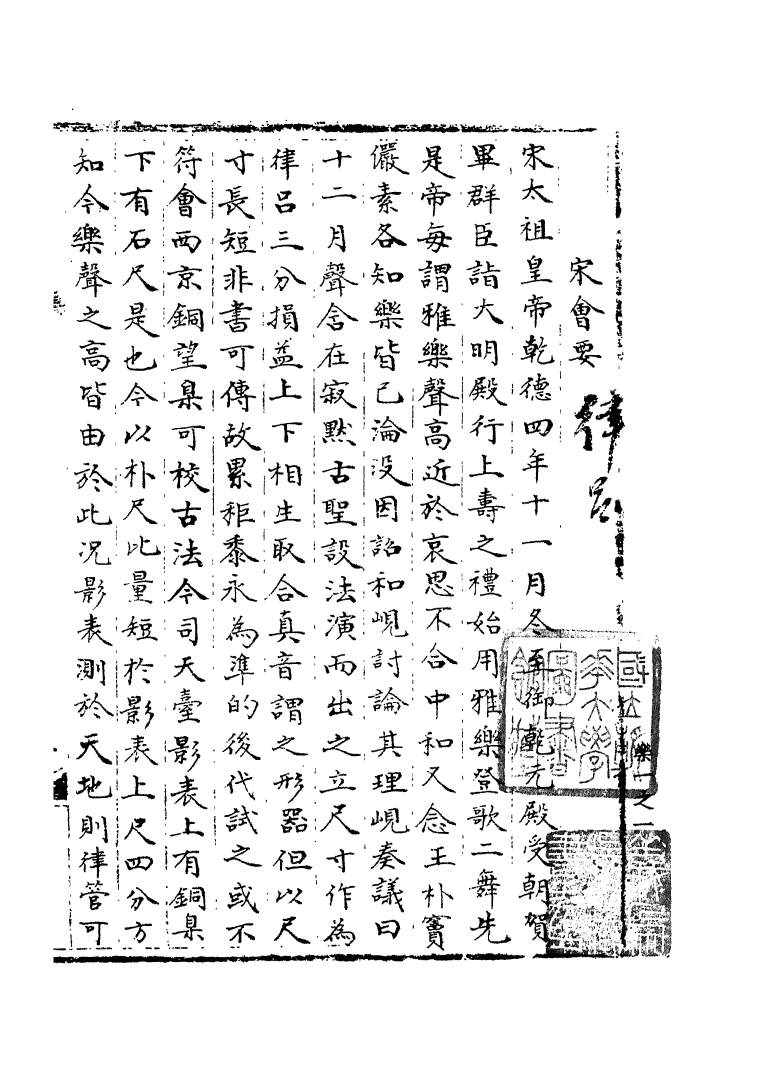 律呂
宋會要
宋太祖皇帝乾德四年十一月冬至御乾元殿受朝賀
畢群臣詣大明殿行上壽之禮始用雅樂登歌二舞先
是帝每謂雅樂聲高近於哀思不合中和又念王朴竇
儼素各知樂皆已淪没因詔和峴討論其理峴奏議曰
十二月聲含在寂默古聖設法演而出之立尺寸作為
律呂三分損益上下相生取合真音謂之形器但以尺
寸長短非書可傳故累秬黍永為準的後代試之或不
符會西京銅望臬可校古法今司天臺影表上有銅臬
下有石尺是也今以朴尺比量短於影表上尺四分方
知今樂聲之高皆由於此况影表測於天地則律管可
樂一之一